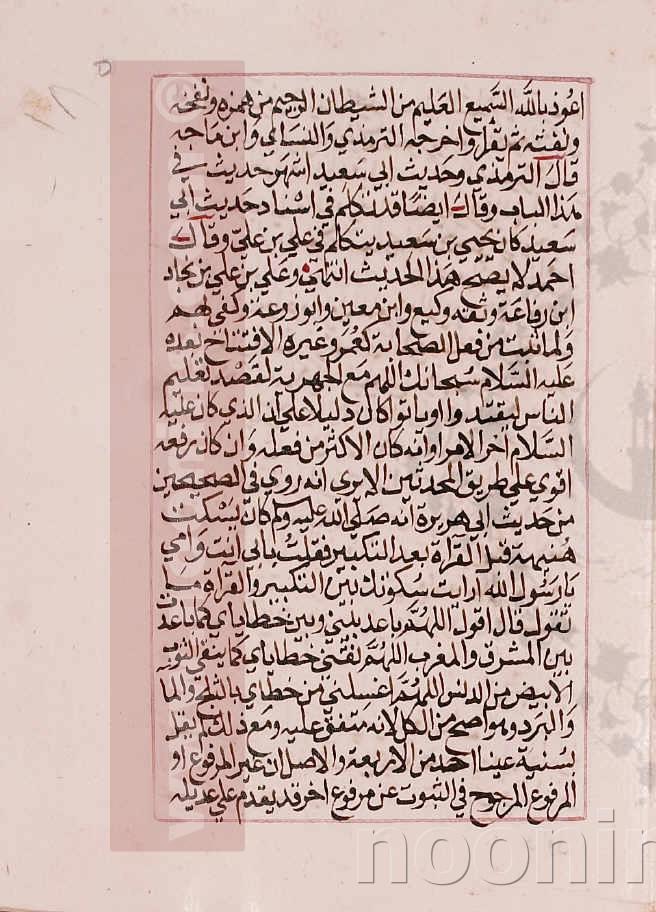 اعوذ بالله السميع العليم من الشيطان الرجيم من همزه ونفخه
ونفثه ثم يقرا واخرجه الترمذي والنسائي وابن ماجه
قال الترمذي وحديث ابي سعيد اشهر حديث في
هذا الباب وقال ايضا قد تكلم في اسناد حديث ابي
سعيد كان يحيى بن سعيد يتكلم في علي بن علي وقال
احمد لا يصح هذا الحديث انتهى وعلي بن علي بن نجاد
ابن رفاعة وثقه وكيع وابن معين وابو زرعة وكفى بهم
ولما ثبت من فعل الصحابة كعمر وغيره الافتتاح بعده
عليه السلام سبحانك اللهم مع الجهر به لقصد تعليم
الناس ليقتدوا او ياتوا كان دليلا علي ان الذي كان عليه
السلام اخر الامر او انه كان الاكثر من فعله وان كان رفعه
اقوي علي طريق المحدثين الا يري انه روي في الصحيحين
من حديث ابي هريرة انه صلى الله عليه وسلم كان يسكت
هنيهة قبل القرآة بعد التكبير فقلت بابي انت وامي
يا رسول الله ارايت سكوتك بين التكبير والقراه ما
تقول قال اقول اللهم باعد بيني وبين خطاياي كما باعدت
بين المشرق والمغرب اللهم نقني خطاياي كما ينقى الثوب
الابيض من الدنس اللهم اغسلني من خطاي بالثلج والما
والبرد وهو اصح من الكل لانه متفق عليه ومع ذلك لم يقل
بسنيته عينا احد من الاربعة والاصل ان غير المرفوع او
المرفوع المرجوح في الثبوت عن مرفوع اخر قد يقدم علي عديله
noonin